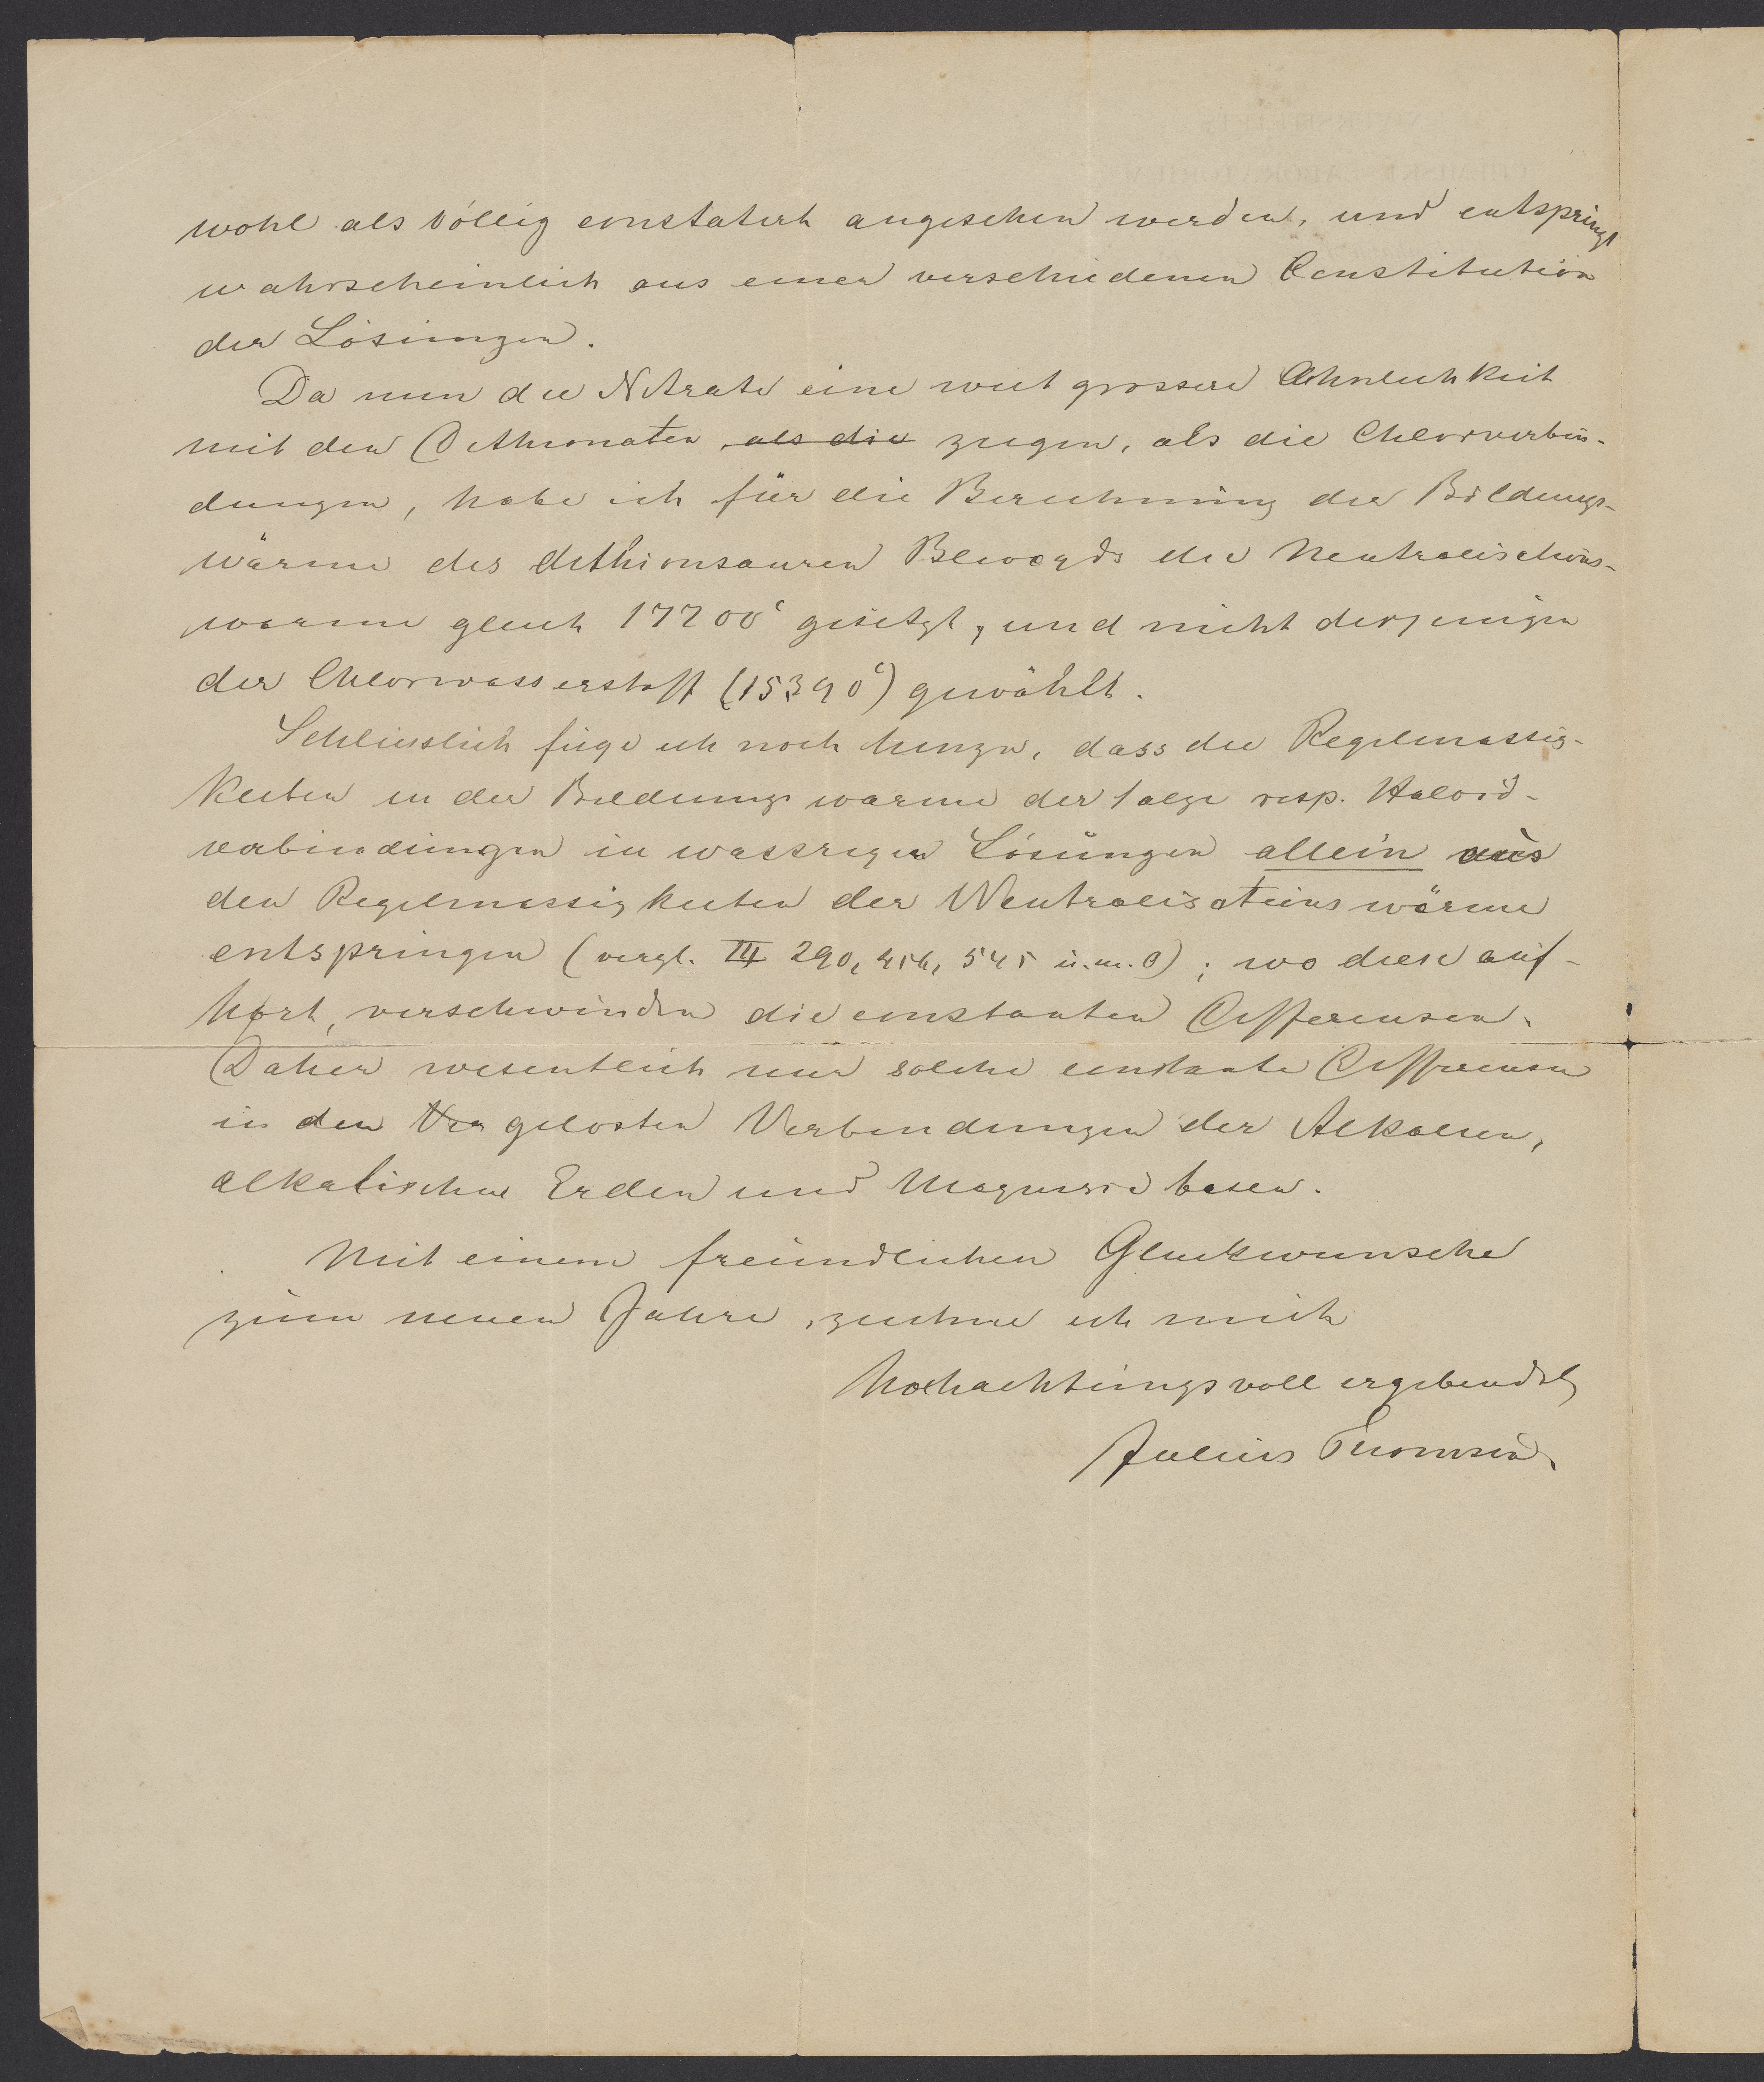 wohl als völlig constatirt angesehen werden, und entspringt
wahrscheinlich aus einer verschiedenen Constitution
der Lösungen.
Da nun die Nitrate eine weit grossere Aehnlichkeit
mit den Dithionaten, als die zeigen, als die Chlorverbin-
dungen, habe ich für die Berechnung der Bildungs-
wärme des dithionsauren Bleioxyds die Neutralisations-
warme gleich 17700c gesetzt, und nicht derjenigen
der Chlorwasserstoff (15390c) gewählt.
Schliesslich füge ich noch hinzu, dass die Regelmassig-
keiten in der Bildungswarme der Salze resp. Haloid-
verbindungen in wassrigen Lösungen allein aus
den Regelmassigkeiten der Neutralisationswärme
entspringen (vergl. III 290, 456, 545 u.m.O); wo diese auf-
hört, verschwinden die constanten Differensen.
Daher wesentlich nur solche constante Differensen
in den Ver gelosten Verbindungen der Alkalien,
alkalischen Erden und Magnesiabasen.
Mit einem freundlichen Gluckwunsche
zum neuen Jahre, zeichne ich mich
hochachtungsvoll ergebendst
Julius Thomsen